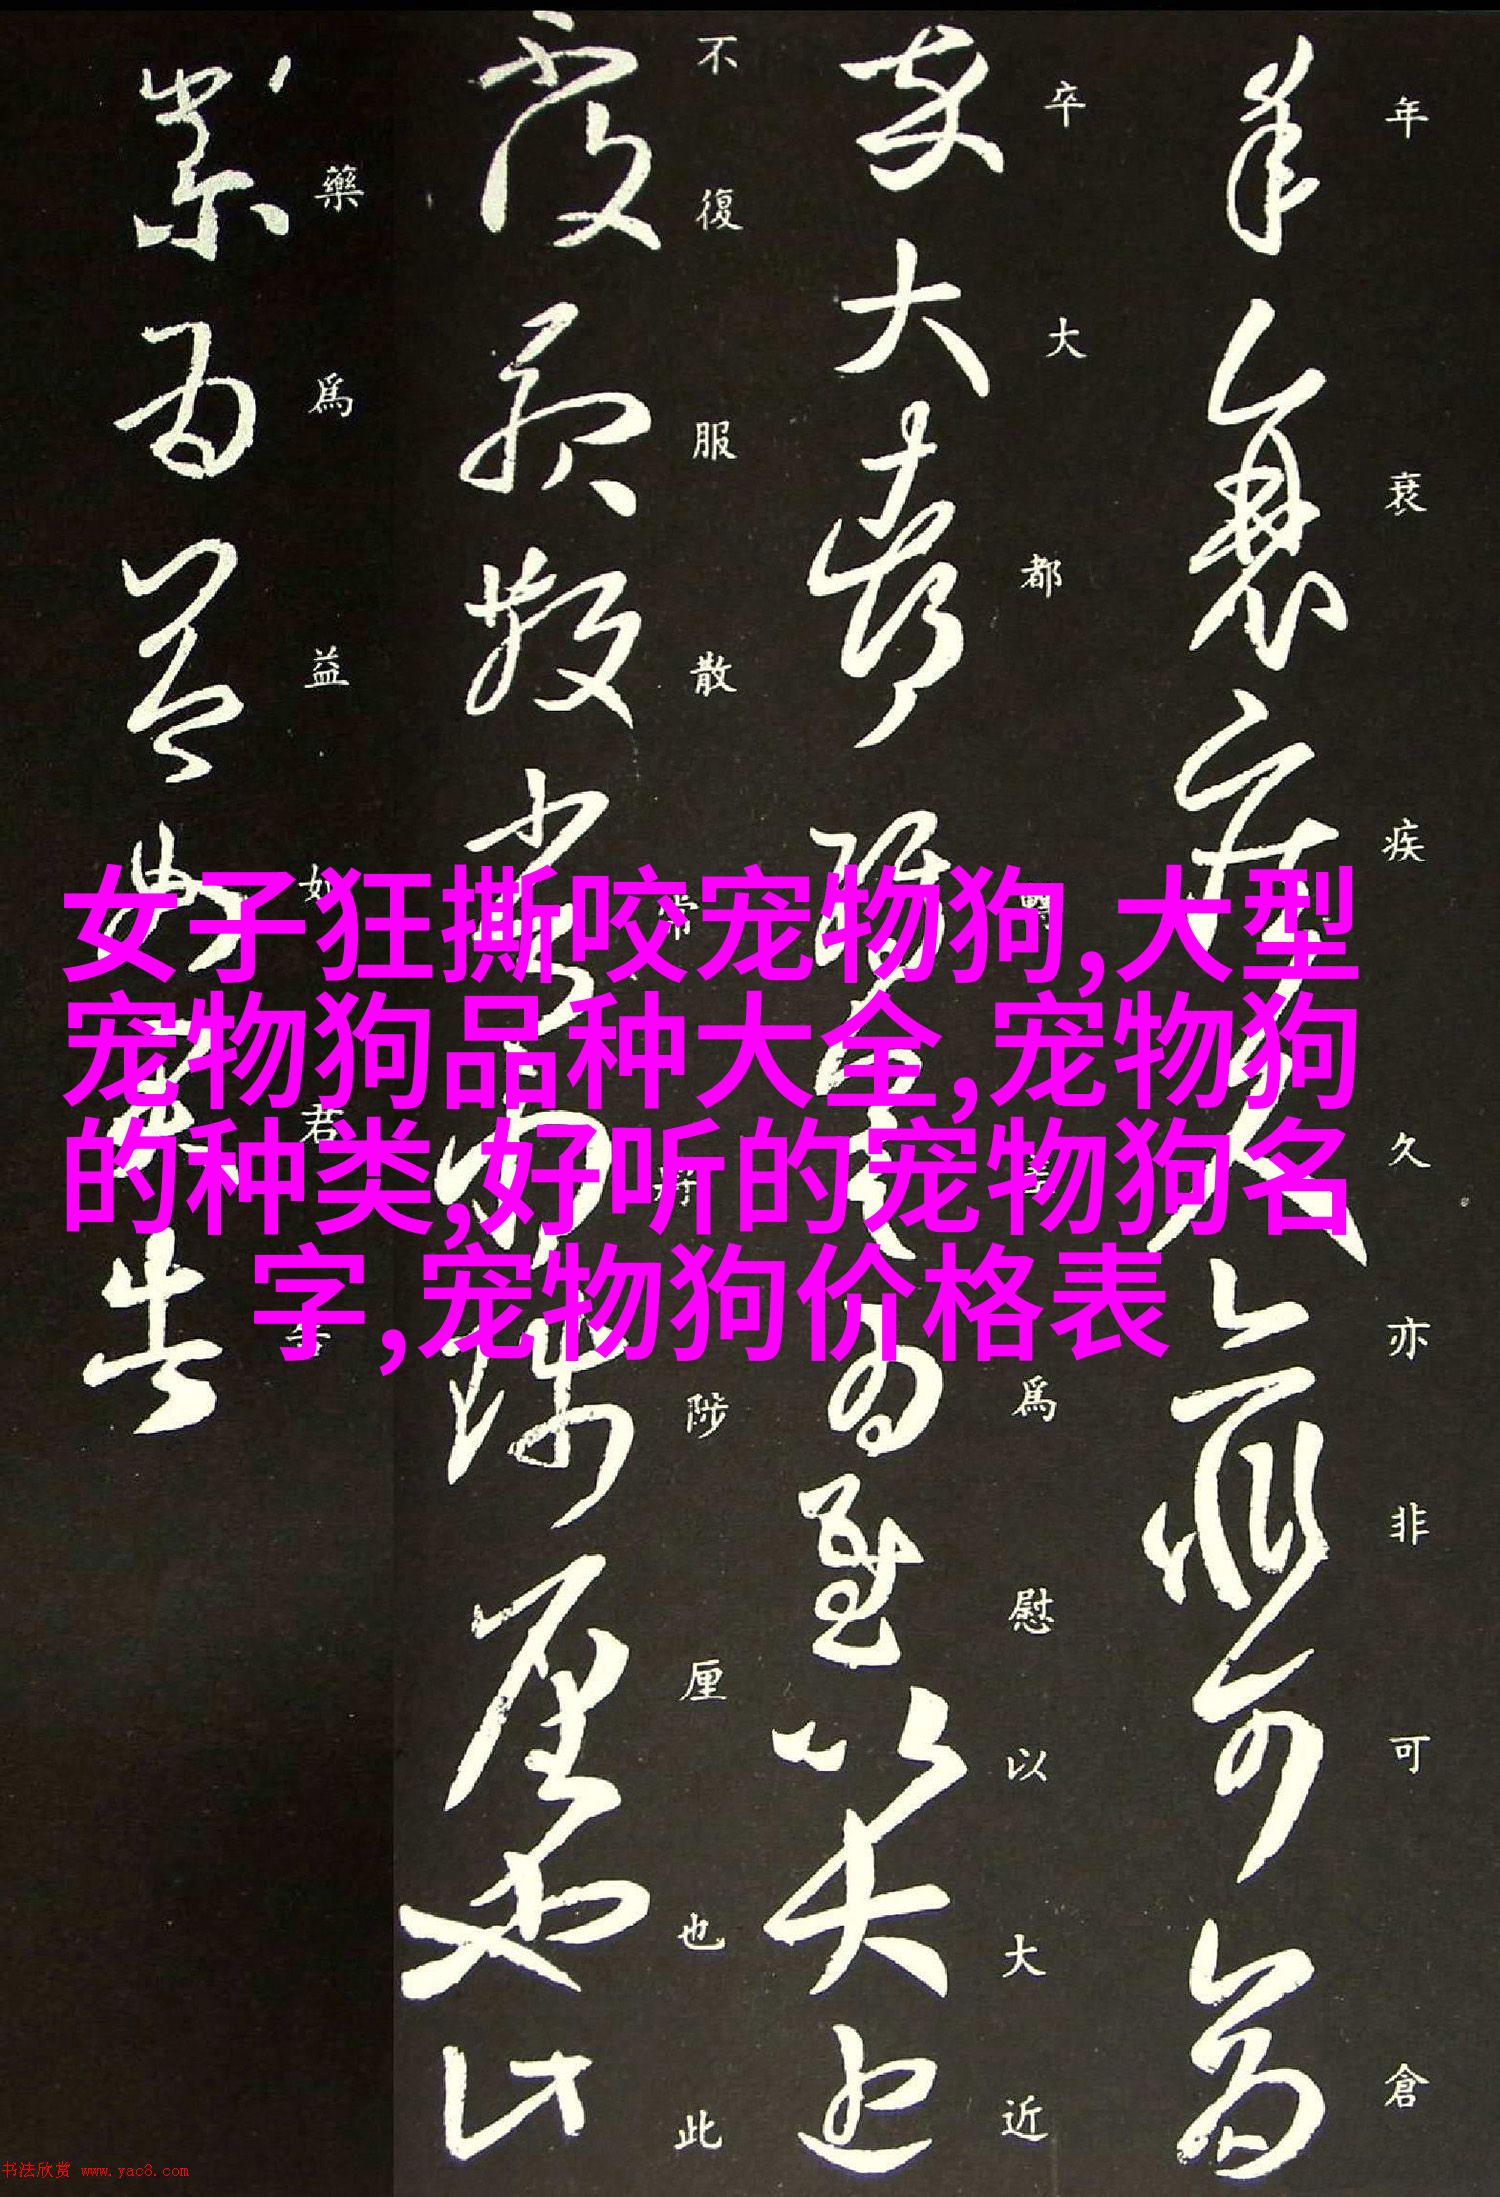 女子狂撕咬宠物狗,大型
宠物狗品种大全,宠物狗
的种类,好听的宠物狗名
字,宠物狗价格表
年衰疾久亦非可倉
卒大都為慰以大近
不復服散常陟厘也此
藥為益如君告
书法欣赏 www.yac8.com